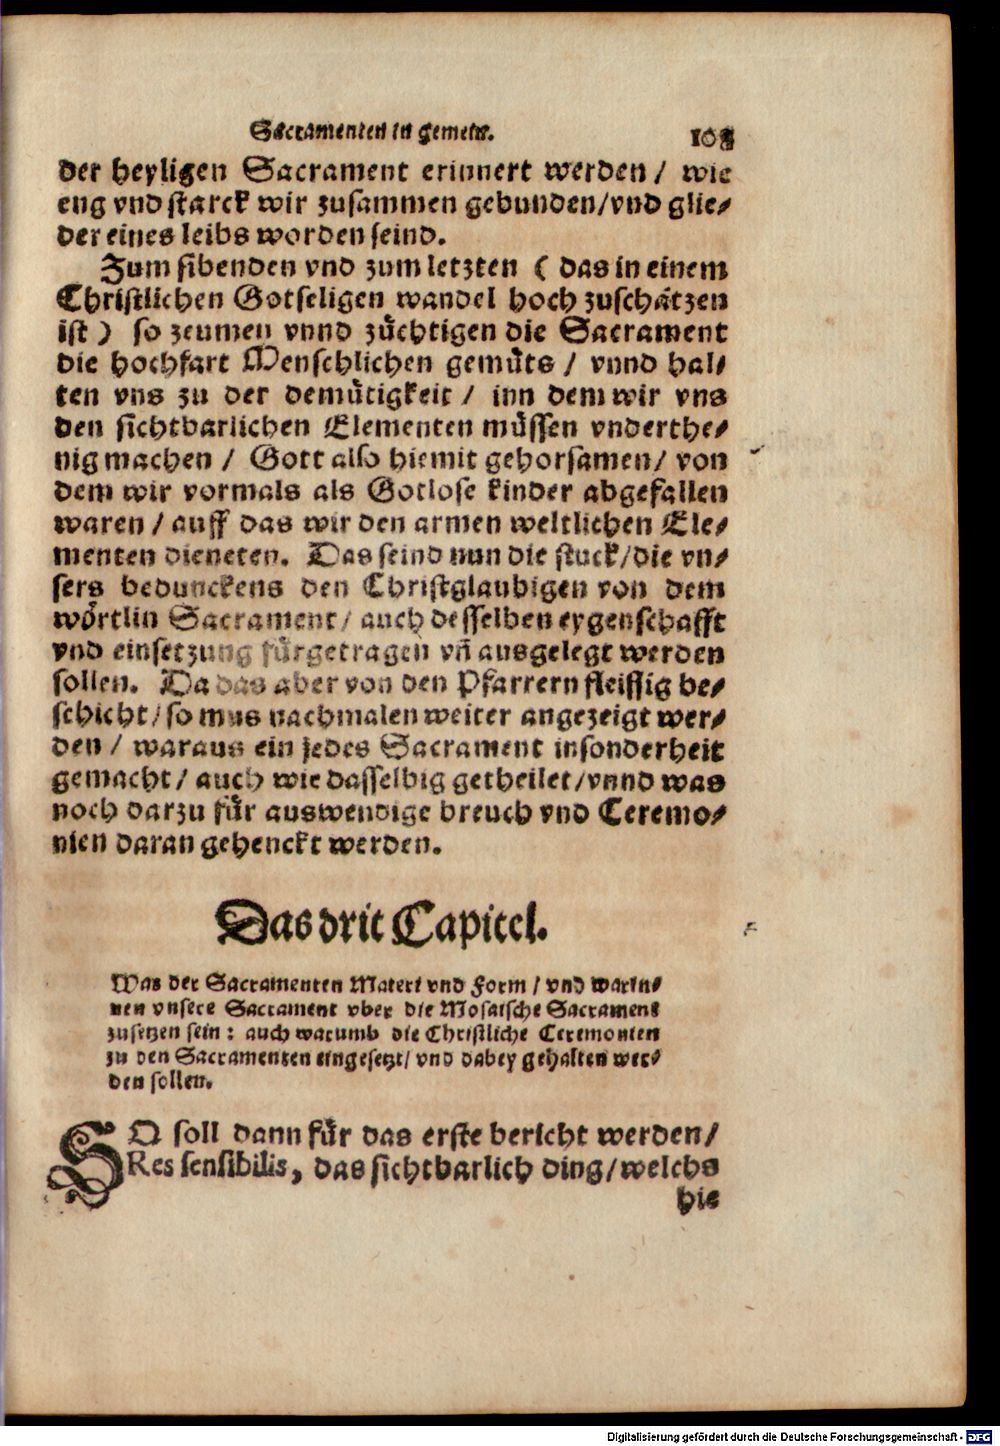 Sacramenten in gemein.
der heyligen Sacrament erinnert werden / wie
eng vnd starck wir zusammen gebunden/vnd glie⸗
der eines leibs worden seind.
Zum sibenden vnd zum letzten ( das in einem
Christlichen Gotseligen wandel hoch zuschätzen
ist ) so zeumen vnnd züchtigen die Sacrament
die hochfart Menschlichen gemüts / vnnd hal⸗
ten vns zu der demütigkeit / inn dem wir vns
den sichtbarlichen Elementen müssen vnderthe⸗
nig machen / Gott also hiemit gehorsamen/ von
dem wir vormals als Gotlose kinder abgefallen
waren / auff das wir den armen weltlichen Ele⸗
menten dieneten. Das seind nun die stuck/die vn⸗
sers bedunckens den Christglaubigen von dem
wörtlin Sacrament/ auch desselben eygenschafft
vnd einsetzung fürgetragen vñ ausgelegt werden
sollen. Da das aber von den Pfarrern fleissig be⸗
schicht/so mus nachmalen weiter angezeigt wer⸗
den / waraus ein jedes Sacrament insonderheit
gemacht/ auch wie dasselbig getheilet/vnnd was
noch darzu für auswendige breuch vnd Ceremo⸗
nien daran gehenckt werden.
Das drit Capitel.
Was der Sacramenten Materi vnd Form / vnd warin⸗
nen vnsere Sacrament vber die Mosaische Sacrament
zusetzen sein : auch warumb die Christliche Ceremonien
zu den Sacramenten eingesetzt/ vnd dabey gehalten wer⸗
den sollen.
SO soll dann für das erste bericht werden/
Res sensibilis, das sichtbarlich ding/welchs
hie
Digitalisierung gefördert durch die Deutsche Forschungsgemeinschaft - DFG